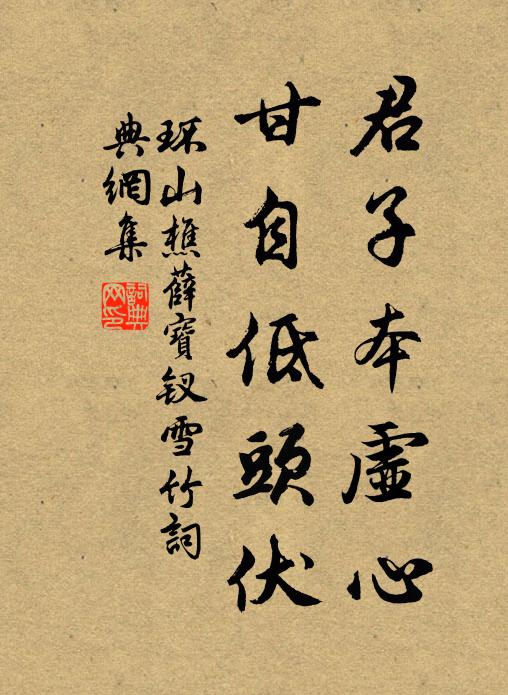 君子本虛心
甘自低頭伏
環山樵薛寶釵雪竹詞
典網集
詞典網印